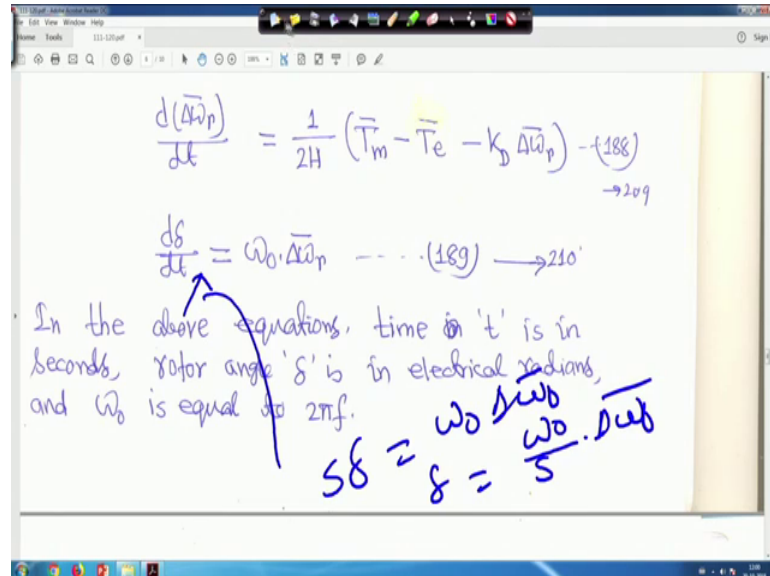 111-120.pdf - Adobe Acrobat Reader DC
File Edit View Window Help
Home Tools 111-120.pdf × Sign
d(Δω̄r)/dt = 1/2H (T̄m − T̄e − K_D Δω̄r) --(188)
→209
dδ/dt = ω0. Δω̄r ---- .(189) →210
In the above equations, time in 't' is in
seconds, rotor angle 'δ' is in electrical radians,
and ω0 is equal to 2πf.
sδ = ω0 Δω̄0
δ = ω0/s . Δω̄